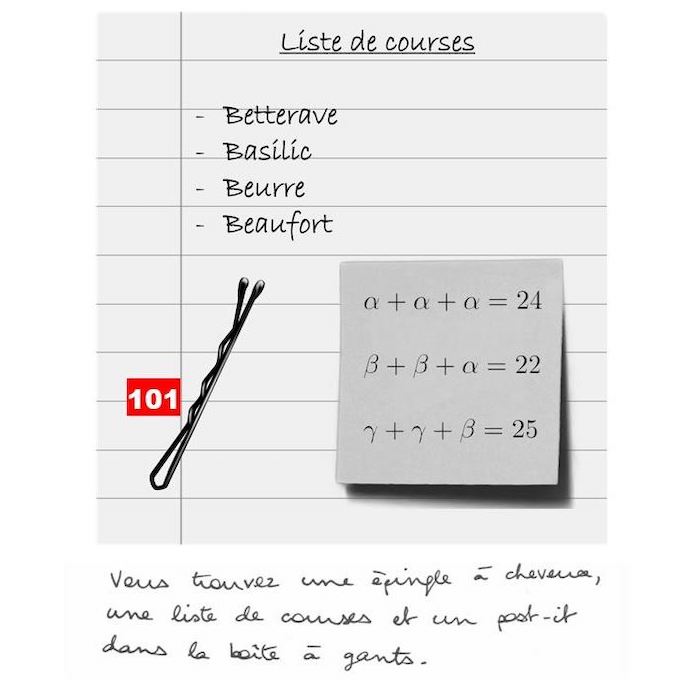 Liste de courses
- Betterave
- Basilic
- Beurre
- Beaufort
α + α + α = 24
β + β + α = 22
γ + γ + β = 25
101
Vous trouvez une épingle à cheveux,
une liste de courses et un post-it
dans la boîte à gants.